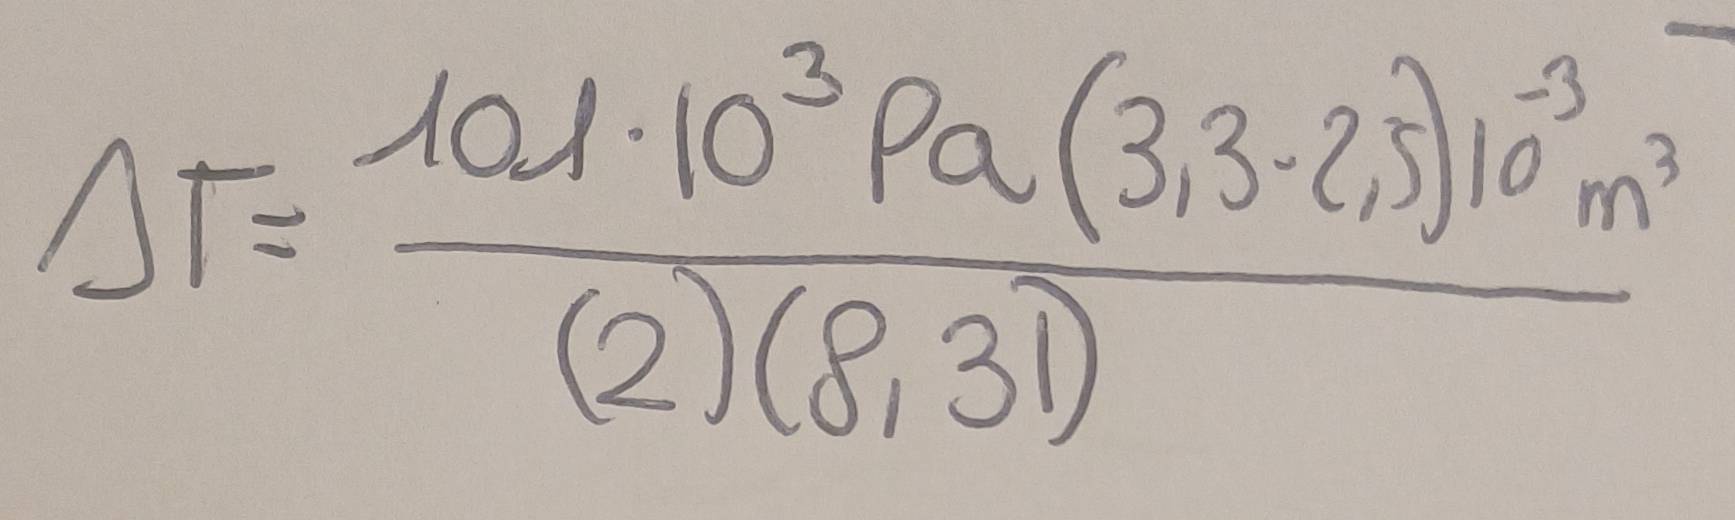 ΔT = \frac{101 \cdot 10^3 Pa (3,3 - 2,5) 10^{-3} m^3}{(2)(8,31)}